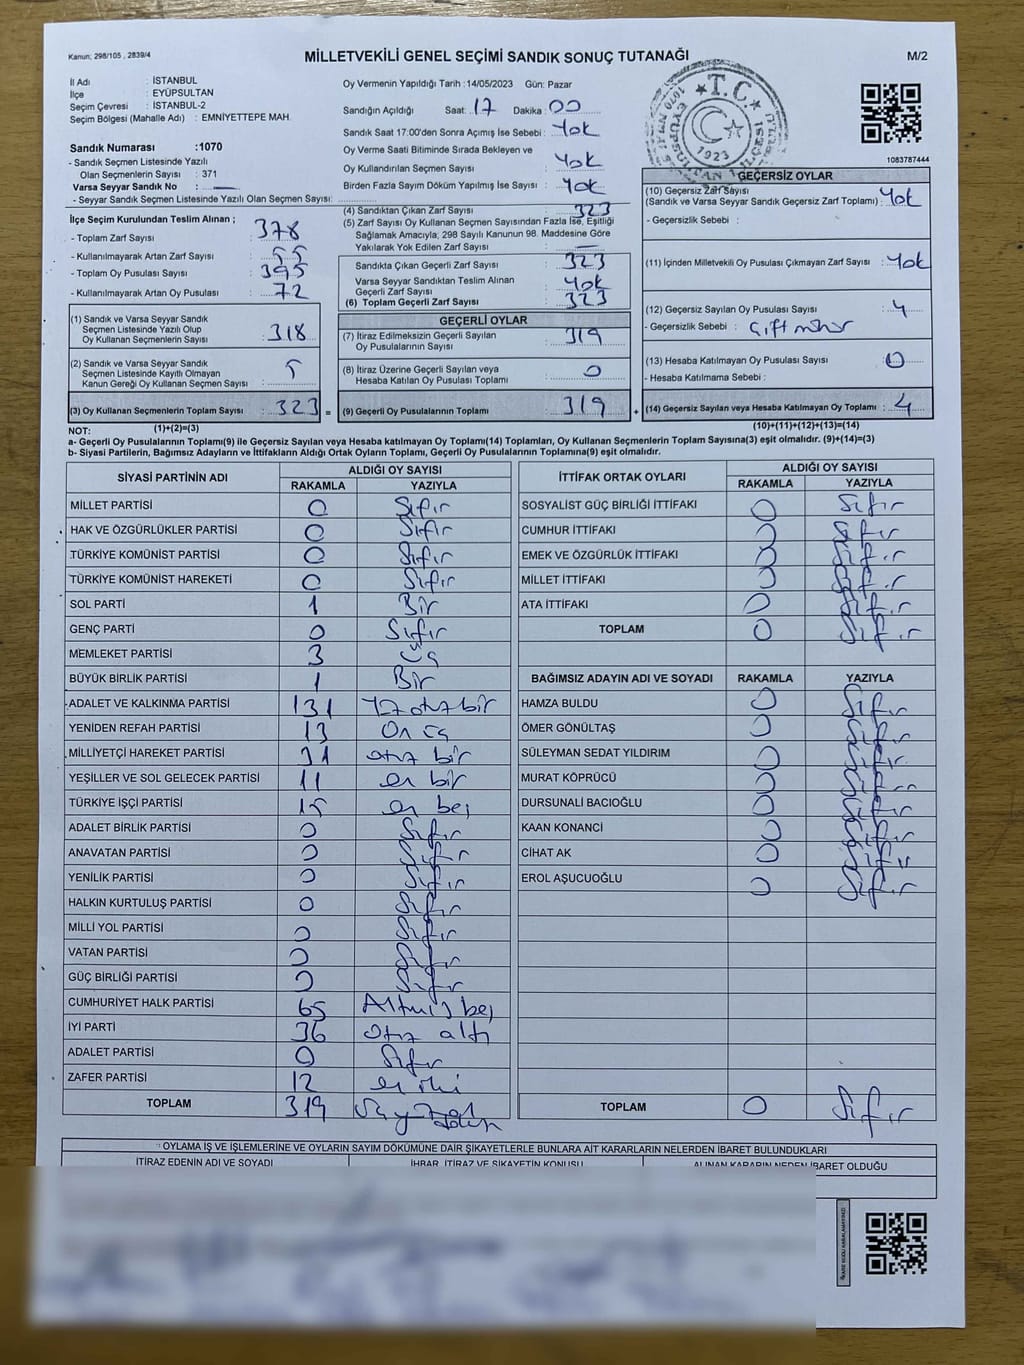 Kanun; 298/105 , 2839/4
MİLLETVEKİLİ GENEL SEÇİMİ SANDIK SONUÇ TUTANAĞI
M/2
İl Adı : İSTANBUL
İlçe : EYÜPSULTAN
Seçim Çevresi : İSTANBUL-2
Seçim Bölgesi (Mahalle Adı) : EMNİYETTEPE MAH.
Oy Vermenin Yapıldığı Tarih :14/05/2023 Gün: Pazar
Sandığın Açıldığı Saat: 17 Dakika : 00
Sandık Saat 17:00'den Sonra Açımış İse Sebebi : Yok
Oy Verme Saati Bitiminde Sırada Bekleyen ve
Oy Kullandırılan Seçmen Sayısı : Yok
Birden Fazla Sayım Döküm Yapılmış İse Sayısı : Yok
T.C.
1923
1083787444
Sandık Numarası :1070
- Sandık Seçmen Listesinde Yazılı
Olan Seçmenlerin Sayısı : 371
Varsa Seyyar Sandık No : —
- Seyyar Sandık Seçmen Listesinde Yazılı Olan Seçmen Sayısı:
İlçe Seçim Kurulundan Teslim Alınan ;
- Toplam Zarf Sayısı : 378
- Kullanılmayarak Artan Zarf Sayısı : 55
- Toplam Oy Pusulası Sayısı : 395
- Kullanılmayarak Artan Oy Pusulası : 72
(1) Sandık ve Varsa Seyyar Sandık
Seçmen Listesinde Yazılı Olup
Oy Kullanan Seçmenlerin Sayısı : 318
(2) Sandık ve Varsa Seyyar Sandık
Seçmen Listesinde Kayıtlı Olmayan
Kanun Gereği Oy Kullanan Seçmen Sayısı : 5
(3) Oy Kullanan Seçmenlerin Toplam Sayısı : 323 =
(1)+(2)=(3)
(4) Sandıktan Çıkan Zarf Sayısı : 323
(5) Zarf Sayısı Oy Kullanan Seçmen Sayısından Fazla İse, Eşitliği
Sağlamak Amacıyla, 298 Sayılı Kanunun 98. Maddesine Göre
Yakılarak Yok Edilen Zarf Sayısı : —
Sandıkta Çıkan Geçerli Zarf Sayısı : 323
Varsa Seyyar Sandıktan Teslim Alınan
Geçerli Zarf Sayısı : Yok
(6) Toplam Geçerli Zarf Sayısı : 323
GEÇERLİ OYLAR
(7) İtiraz Edilmeksizin Geçerli Sayılan
Oy Pusulalarının Sayısı : 319
(8) İtiraz Üzerine Geçerli Sayılan veya
Hesaba Katılan Oy Pusulası Toplamı : 0
(9) Geçerli Oy Pusulalarının Toplamı : 319 +
GEÇERSİZ OYLAR
(10) Geçersiz Zarf Sayısı
(Sandık ve Varsa Seyyar Sandık Geçersiz Zarf Toplamı) : Yok
- Geçersizlik Sebebi :
(11) İçinden Milletvekili Oy Pusulası Çıkmayan Zarf Sayısı : Yok
(12) Geçersiz Sayılan Oy Pusulası Sayısı : 4
- Geçersizlik Sebebi : Çift mühür
(13) Hesaba Katılmayan Oy Pusulası Sayısı : 0
- Hesaba Katılmama Sebebi :
(14) Geçersiz Sayılan veya Hesaba Katılmayan Oy Toplamı : 4
(10)+(11)+(12)+(13)=(14)
NOT:
a- Geçerli Oy Pusulalarının Toplamı(9) ile Geçersiz Sayılan veya Hesaba katılmayan Oy Toplamı(14) Toplamları, Oy Kullanan Seçmenlerin Toplam Sayısına(3) eşit olmalıdır. (9)+(14)=(3)
b- Siyasi Partilerin, Bağımsız Adayların ve İttifakların Aldığı Ortak Oyların Toplamı, Geçerli Oy Pusulalarının Toplamına(9) eşit olmalıdır.
SİYASİ PARTİNİN ADI ALDIĞI OY SAYISI
RAKAMLA YAZIYLA
MİLLET PARTİSİ 0 Sıfır
HAK VE ÖZGÜRLÜKLER PARTİSİ 0 Sıfır
TÜRKİYE KOMÜNİST PARTİSİ 0 Sıfır
TÜRKİYE KOMÜNİST HAREKETİ 0 Sıfır
SOL PARTİ 1 Bir
GENÇ PARTİ 0 Sıfır
MEMLEKET PARTİSİ 3 Üç
BÜYÜK BİRLİK PARTİSİ 1 Bir
ADALET VE KALKINMA PARTİSİ 131 Yüz otuz bir
YENİDEN REFAH PARTİSİ 13 On üç
MİLLİYETÇİ HAREKET PARTİSİ 31 otuz bir
YEŞİLLER VE SOL GELECEK PARTİSİ 11 on bir
TÜRKİYE İŞÇİ PARTİSİ 15 on beş
ADALET BİRLİK PARTİSİ 0 Sıfır
ANAVATAN PARTİSİ 0 Sıfır
YENİLİK PARTİSİ 0 Sıfır
HALKIN KURTULUŞ PARTİSİ 0 Sıfır
MİLLİ YOL PARTİSİ 0 Sıfır
VATAN PARTİSİ 0 Sıfır
GÜÇ BİRLİĞİ PARTİSİ 0 Sıfır
CUMHURİYET HALK PARTİSİ 65 Altmış beş
İYİ PARTİ 36 otuz altı
ADALET PARTİSİ 0 Sıfır
ZAFER PARTİSİ 12 on iki
TOPLAM 319
İTTİFAK ORTAK OYLARI ALDIĞI OY SAYISI
RAKAMLA YAZIYLA
SOSYALİST GÜÇ BİRLİĞİ İTTİFAKI 0 Sıfır
CUMHUR İTTİFAKI 0 Sıfır
EMEK VE ÖZGÜRLÜK İTTİFAKI 0 Sıfır
MİLLET İTTİFAKI 0 Sıfır
ATA İTTİFAKI 0 Sıfır
TOPLAM 0 Sıfır
BAĞIMSIZ ADAYIN ADI VE SOYADI RAKAMLA YAZIYLA
HAMZA BULDU 0 Sıfır
ÖMER GÖNÜLTAŞ 0 Sıfır
SÜLEYMAN SEDAT YILDIRIM 0 Sıfır
MURAT KÖPRÜCÜ 0 Sıfır
DURSUNALİ BACIOĞLU 0 Sıfır
KAAN KONANCİ 0 Sıfır
CİHAT AK 0 Sıfır
EROL AŞUCUOĞLU 0 Sıfır
TOPLAM 0 Sıfır
OYLAMA İŞ VE İŞLEMLERİNE VE OYLARIN SAYIM DÖKÜMÜNE DAİR ŞİKAYETLERLE BUNLARA AİT KARARLARIN NELERDEN İBARET BULUNDUKLARI
İTİRAZ EDENİN ADI VE SOYADI İHBAR, İTİRAZ VE ŞİKAYETİN KONUSU ALINAN KARARIN NEDEN İBARET OLDUĞU